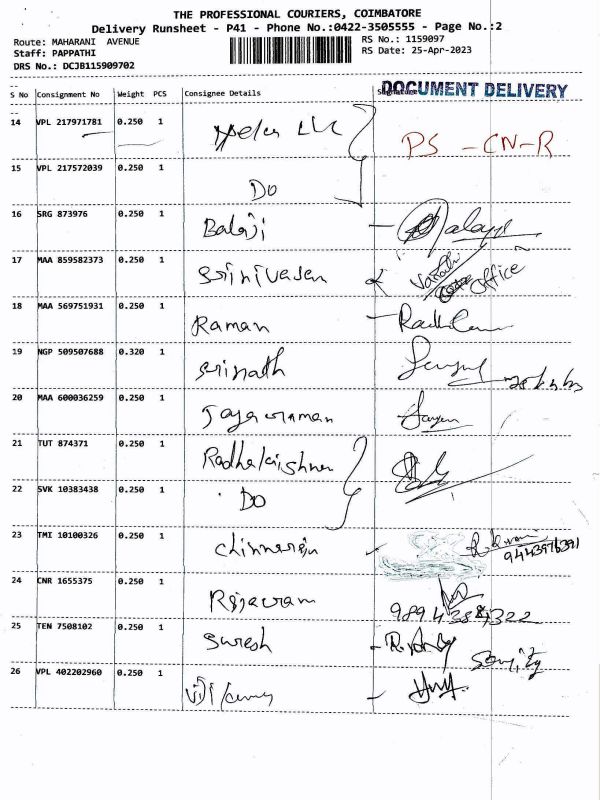 THE PROFESSIONAL COURIERS, COIMBATORE
Delivery Runsheet - P41 - Phone No.:0422-3505555 - Page No.:2
Route: MAHARANI AVENUE RS No.: 1159097
Staff: PAPPATHI RS Date: 25-Apr-2023
DRS No.: DCJB115909702
DOCUMENT DELIVERY
S No Consignment No Weight PCS Consignee Details Signature
14 VPL 217971781 0.250 1
PS - CN - R
15 VPL 217572039 0.250 1
DO
16 SRG 873976 0.250 1
Balaji
17 MAA 859582373 0.250 1
Srinivasan office
18 MAA 569751931 0.250 1
Raman
19 NGP 509507688 0.320 1
Srinath
20 MAA 600036259 0.250 1
Jayaraman
21 TUT 874371 0.250 1
Radhakrishnan
22 SVK 10383438 0.250 1
DO
23 TMI 10100326 0.250 1
24 CNR 1655375 0.250 1
Rajaram
25 TEN 7508102 0.250 1
Suresh
26 VPL 402202960 0.250 1